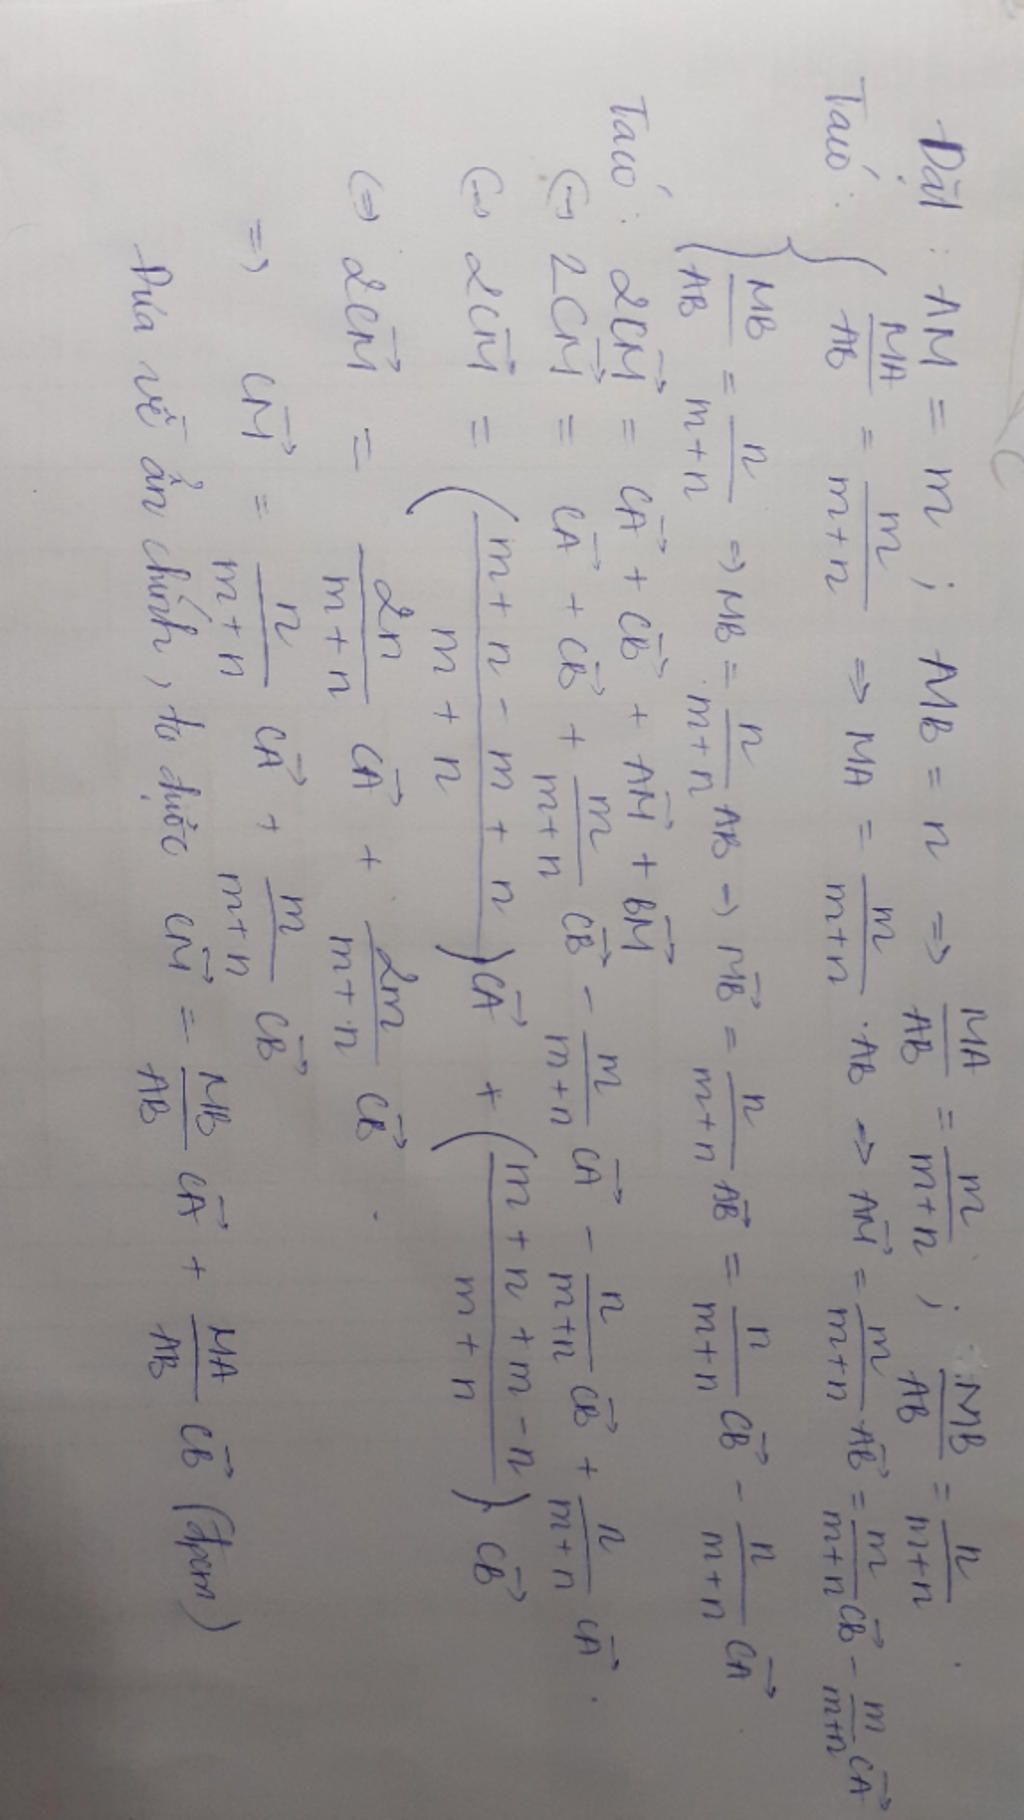 Đặt : AM = m ; MB = n ⇒ MA/AB = m/(m+n) ; MB/AB = n/(m+n).
Ta có : { MA/AB = m/(m+n) ⇒ MA = m/(m+n) . AB ⇒ AM→ = m/(m+n) AB→ = m/(m+n) CB→ - m/(m+n) CA→
MB/AB = n/(m+n) ⇒ MB = n/(m+n) AB → MB→ = n/(m+n) AB→ = n/(m+n) CB→ - n/(m+n) CA→
Ta có : 2CM→ = CA→ + CB→ + AM→ + BM→
(⇒ 2CM→ = CA→ + CB→ + m/(m+n) CB→ - m/(m+n) CA→ - n/(m+n) CB→ + n/(m+n) CA→ .
(⇒ 2CM→ = ((m + n - m + n)/(m + n)) CA→ + ((m + n + m - n)/(m + n)) CB→
(⇒ 2CM→ = 2n/(m+n) CA→ + 2m/(m+n) CB→ .
⇒ CM→ = n/(m+n) CA→ + m/(m+n) CB→
Đưa về ẩn chính, ta được CM→ = MB/AB CA→ + MA/AB CB→ (đpcm)